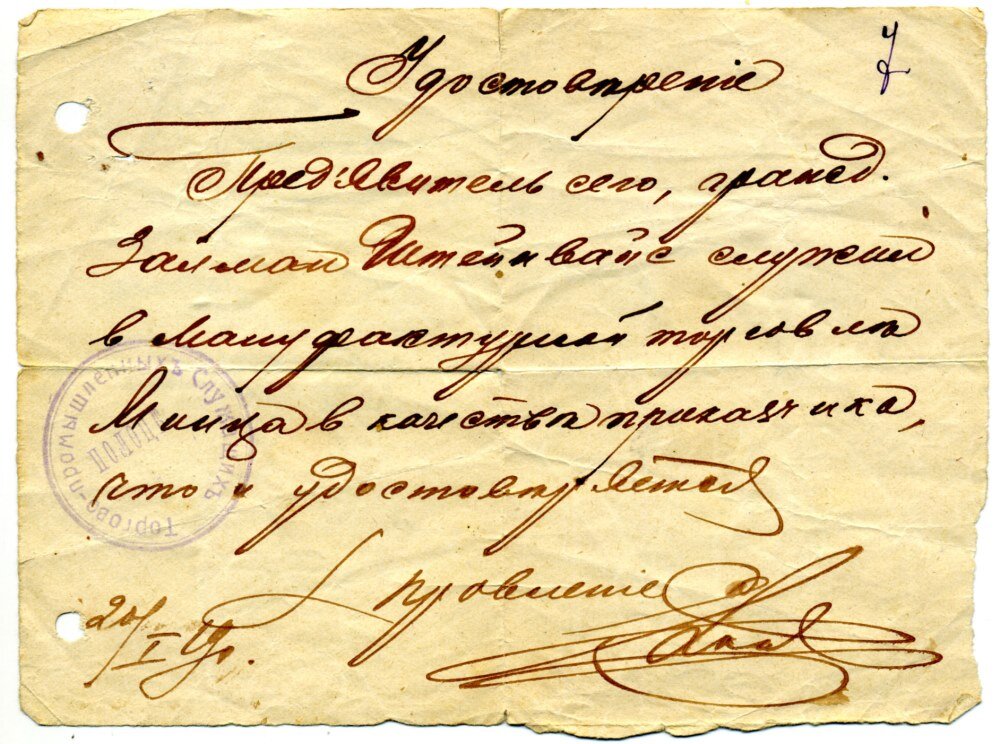 7
Удостовѣреніе
Пред'явитель сего, гражд.
Залман Штейнвайс служил
в мануфактурной торговлѣ
Минца в качествѣ приказчика,
что и удостовѣряется
Правленіе
20/I 19 г.
Торгово-промышленныхъ Служащихъ